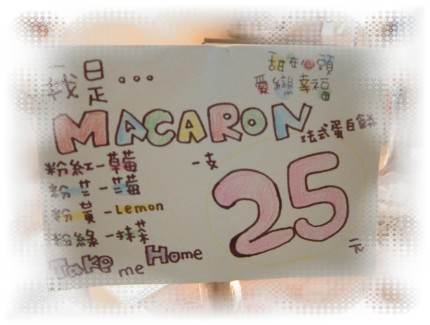 我是...
甜在心頭
愛戀幸福
MACARON
法式蛋白餅
粉紅-草莓
粉芒-芒莓
粉黃-Lemon
粉綠-抹茶
一支
25元
Take me Home